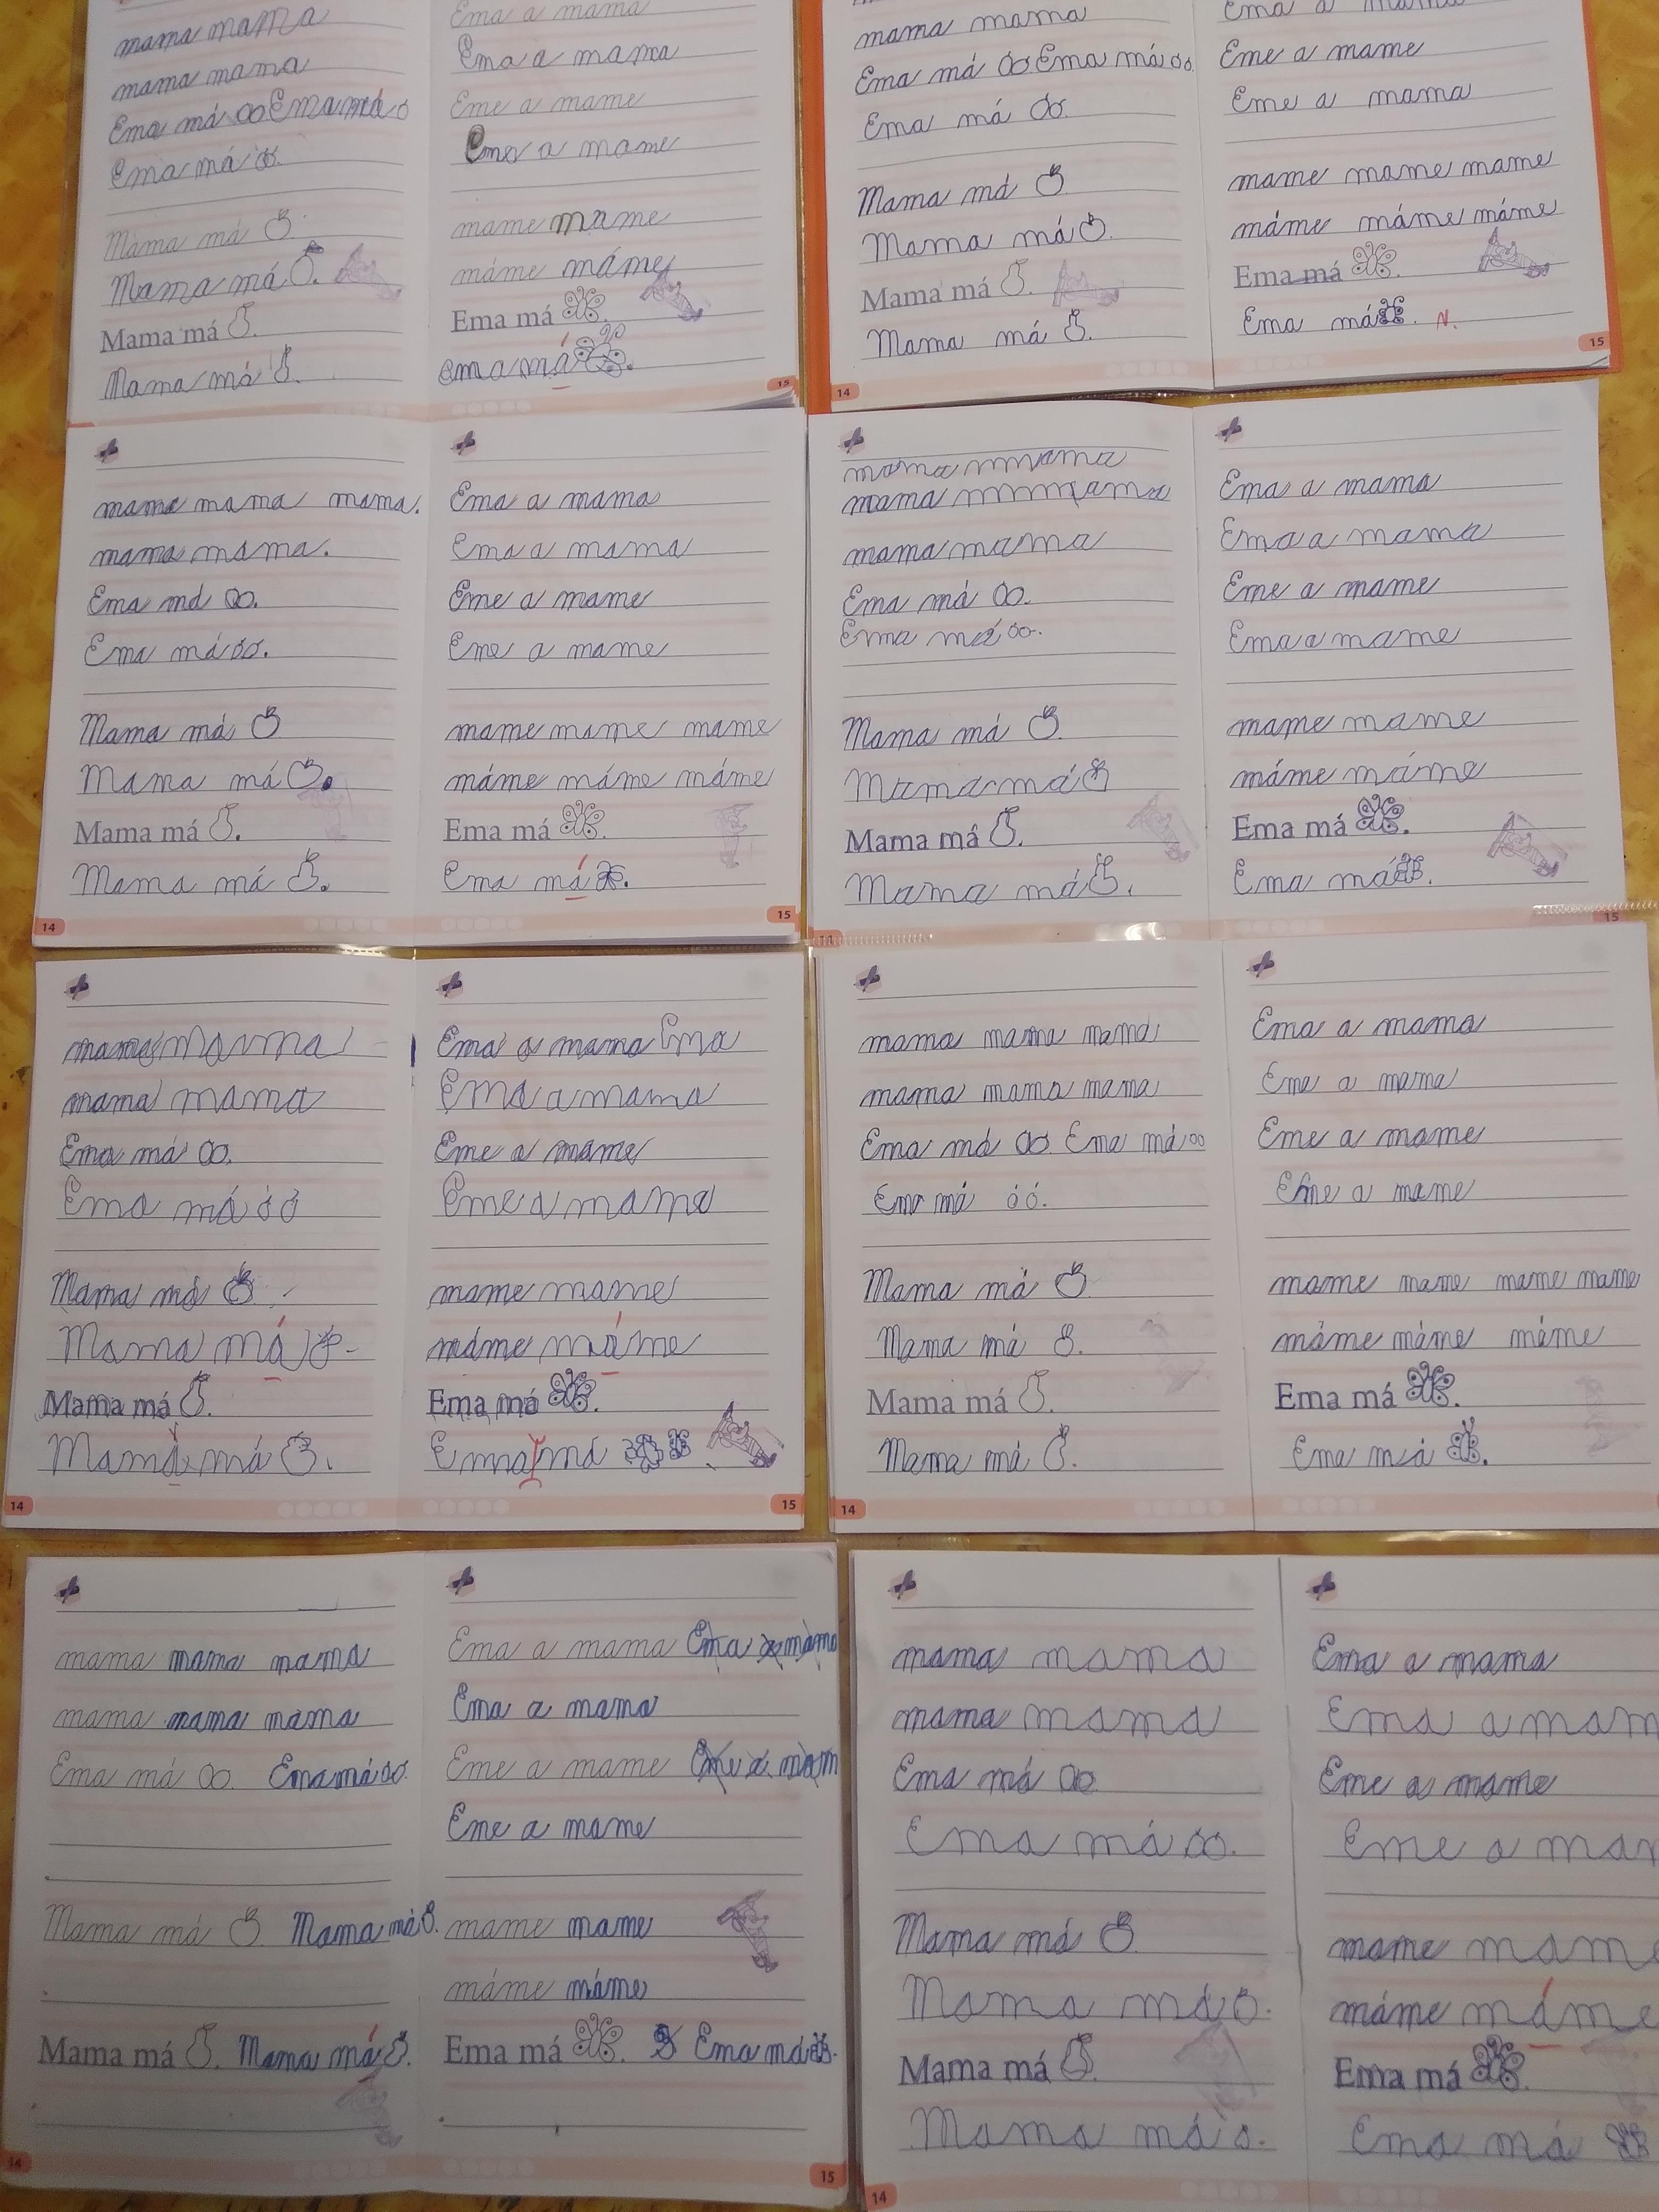 mama mama
mama mama
Ema má Ema má
Ema má
Mama má
Mama má
Mama má
Mama má
Ema a mama
Ema a mama
Eme a mame
Eme a mame
mame mame
máme máme
Ema má
Ema má
15
mama mama
Ema má Ema má
Ema má
Mama má
Mama má
Mama má
Mama má
14
Ema a mama
Eme a mame
Eme a mama
mame mame mame
máme máme máme
Ema má
Ema má N.
15
mama mama mama.
mama mama.
Ema má
Ema má
Mama má
Mama má
Mama má
Mama má
14
Ema a mama
Ema a mama
Eme a mame
Eme a mame
mame mame mame
máme máme máme
Ema má
Ema má
15
mama
mama
mama mama
Ema má
Ema má
Mama má
Mama má
Mama má
Mama má
Ema a mama
Ema a mama
Eme a mame
Ema a mame
mame mame
máme máme
Ema má
Ema má
15
mama
mama mama
Ema má
Ema má
Mama má
Mama má
Mama má
Mama má
14
Ema a mama Ema
Ema a mama
Eme a mame
Eme a mame
mame mame
máme máme
Ema má
Ema má
15
mama mama mama
mama mama mama
Ema má Ema má
Ema má
Mama má
Mama má
Mama má
Mama má
14
Ema a mama
Eme a mama
Eme a mame
Eme a mame
mame mame mame mame
máme máme máme
Ema má
Ema má
mama mama mama
mama mama mama
Ema má Ema má
Mama má Mama má
Mama má Mama má
14
Ema a mama Ema a mama
Ema a mama
Eme a mame Eme a mam
Eme a mame
mame mame
máme máme
Ema má Ema má
15
mama mama
mama mama
Ema má
Ema má
Mama má
Mama má
Mama má
Mama má
14
Ema a mama
Ema a mam
Eme a mame
Eme a mam
mame mame
máme máme
Ema má
Ema má